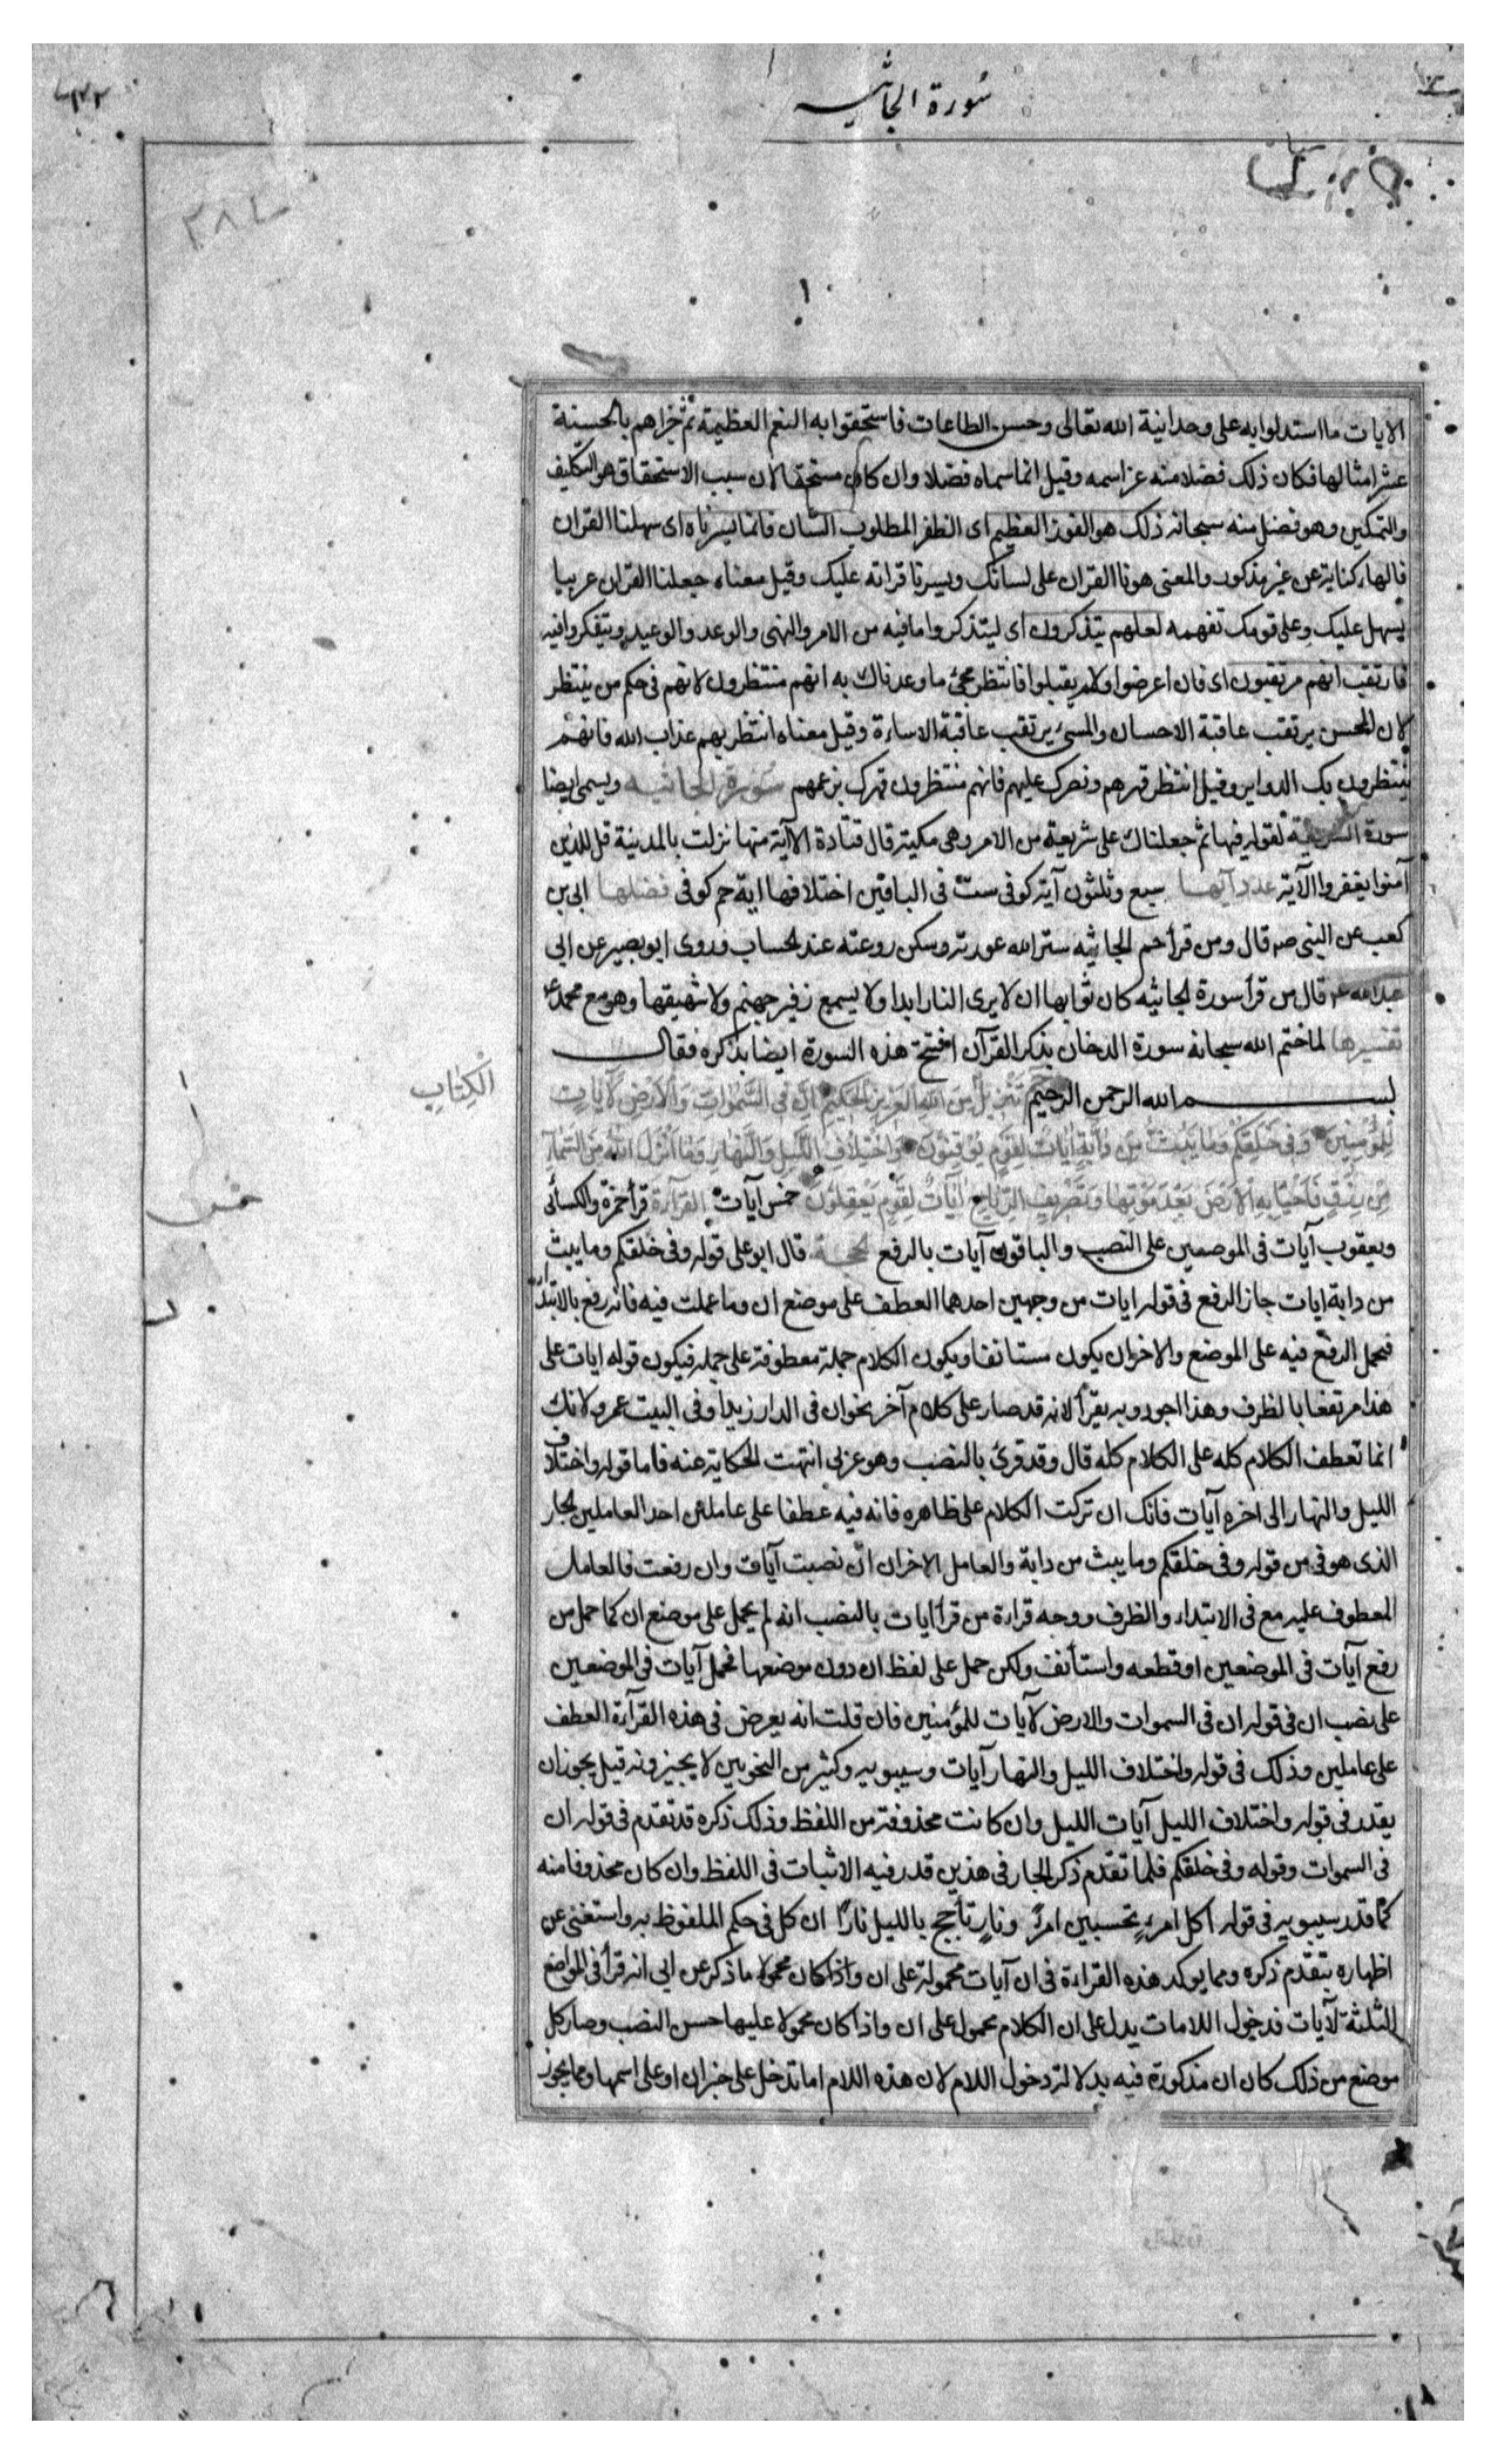 سورة الجاثيه
الايات ما استدلوا به على وحدانية الله تعالى وحسن الطاعات فاستحقوا به النعم العظيمة ثم جزاهم بالحسنة
عشر امثالها فكان ذلك فضلا منه عز اسمه وقيل انما سماه فضلا وان كان مستحقا لان سبب الاستحقاق هو التكليف
والتمكين وهو فضل منه سبحانه ذلك هو الفوز العظيم اى الظفر المطلوب الشان فانما يسرناه اى سهلنا القران
فالهاء كناية عن غير مذكور والمعنى هونا القران على لسانك ويسرنا قراته عليك وقيل معناه جعلنا القران عربيا
يسهل عليك وعلى قومك تفهمه لعلهم يتذكرون اى ليتذكروا ما فيه من الامر والنهى والوعد والوعيد ويتفكروا فيه
فارتقب انهم مرتقبون اى فان اعرضوا ولم يقبلوا فانتظر مجئ ما وعدناك به انهم منتظرون لانهم فى حكم من ينتظر
لان المحسن يرتقب عاقبة الاحسان والمسىء يرتقب عاقبة الاساءة وقيل معناه انتظر بهم عذاب الله فانهم
ينتظرون بك الدواير وقيل انتظر قهرهم ونصرك عليهم فانهم منتظرون قهرك بزعمهم سورة الجاثيه ويسمى ايضا
سورة الشريعة لقوله فيها ثم جعلناك على شريعة من الامر وهى مكية قال قتادة الا آية منها نزلت بالمدينة قل للذين
آمنوا يغفروا الآية عدد آيها سبع وثلثون آية كوفى ستّ فى الباقين اختلافها اية حم كوفى فضلها ابى بن
كعب عن النبى ص قال ومن قرأ حم الجاثيه ستر الله عورته وسكن روعته عند الحساب وروى ابو بصير عن ابى
عبدالله ع قال من قرأ سورة الجاثيه كان ثوابها ان لا يرى النار ابدا ولا يسمع زفير جهنم ولا شهيقها وهو مع محمد ع
تفسيرها لما ختم الله سبحانه سورة الدخان بذكر القرآن افتتح هذه السورة ايضا بذكره فقال
بسم الله الرحمن الرحيم حم تَنْزِيلُ مِنَ اللهِ العَزِيزِ الحَكِيمِ اِنَّ فِى السَّمٰوَاتِ وَالْاَرْضِ لَآيَاتٍ
الْكِتٰابِ
لِلْمُؤْمِنِينَ وَفِى خَلْقِكُمْ وَمَا يَبُثُّ مِنْ دَابَّةٍ اٰيَاتٌ لِقَوْمٍ يُوقِنُونَ وَاخْتِلَافِ اللَّيْلِ وَالنَّهَارِ وَمَا اَنْزَلَ اللهُ مِنَ السَّمَاءِ
مِنْ رِزْقٍ فَاَحْيَا بِهِ الْاَرْضَ بَعْدَ مَوْتِهَا وَتَصْرِيفِ الرِّيَاحِ اٰيَاتٌ لِقَوْمٍ يَعْقِلُونَ خمس آيات القرآءة قرأ حمزة والكسائى
ويعقوب آيات فى الموضعين على النصب والباقون آيات بالرفع الحجة قال ابو على قوله وفى خلقكم وما يبث
من دابة ايات جاز الرفع فى قوله ايات من وجهين احدهما العطف على موضع ان وما عملت فيه فانه رفع بالابتداء
فيحمل الرفع فيه على الموضع والاخر ان يكون مستانفا ويكون الكلام جملة معطوفة على جملة فيكون قوله ايات على
هذا مرتفعا بالظرف وهذا اجود وبه يقرأ لانه قد صار على كلام آخر نحو ان فى الدار زيدا وفى البيت عمرو لانك
انما تعطف الكلام كله على الكلام كله قال وقد قرئ بالنصب وهو عربى انتهت الحكاية عنه فاما قوله واختلاف
الليل والنهار الى اخره آيات فانك ان تركت الكلام على ظاهره فانه فيه عطفا على عاملين احد العاملين الجار
الذى هو فى من قوله وفى خلقكم وما يبث من دابة والعامل الاخر ان انّ نصبت آيات وان رفعت فالعامل
المعطوف عليه مع فى الابتداء والظرف ووجه قراءة من قرأ ايات بالنصب انه لم يحمل على موضع ان كما حمل من
رفع آيات فى الموضعين او قطعه واستأنف ولكن حمل على لفظ ان دون موضعها فحمل آيات فى الموضعين
على نصب ان فى قوله ان فى السموات والارض لآيات للمؤمنين فان قلت انه يعرض فى هذه القرآءة العطف
على عاملين وذلك فى قوله واختلاف الليل والنهار آيات وسيبويه وكثير من النحويين لا يجيزونه قيل يجوز ان
يقدر فى قوله واختلاف الليل آيات الليل وان كانت محذوفة من اللفظ وذلك ذكره قد تقدم فى قوله ان
فى السموات وقوله وفى خلقكم فلما تقدم ذكر الجار فى هذين قدر فيه الاثبات فى اللفظ وان كان محذوفا منه
كما قدر سيبويه فى قوله اكل امرءٍ تحسبين امرأ ونارٍ تأجج بالليل نارًا ان كل فى حكم الملفوظ به واستغنى عن
اظهاره بتقدّم ذكره ومما يوكد هذه القراءة فى ان آيات محمولة على ان واذا كان محمولا ما ذكر عن ابى انه قرأ فى المواضع
الثلثة لآيات فدخول اللامات يدل على ان الكلام محمول على ان واذا كان محمولا عليها حسن النصب وصار كل
موضع من ذلك كان ان مذكورة فيه بدلالة دخول اللام لان هذه اللام اما تدخل على خبر ان او على اسمها ومما يجوز